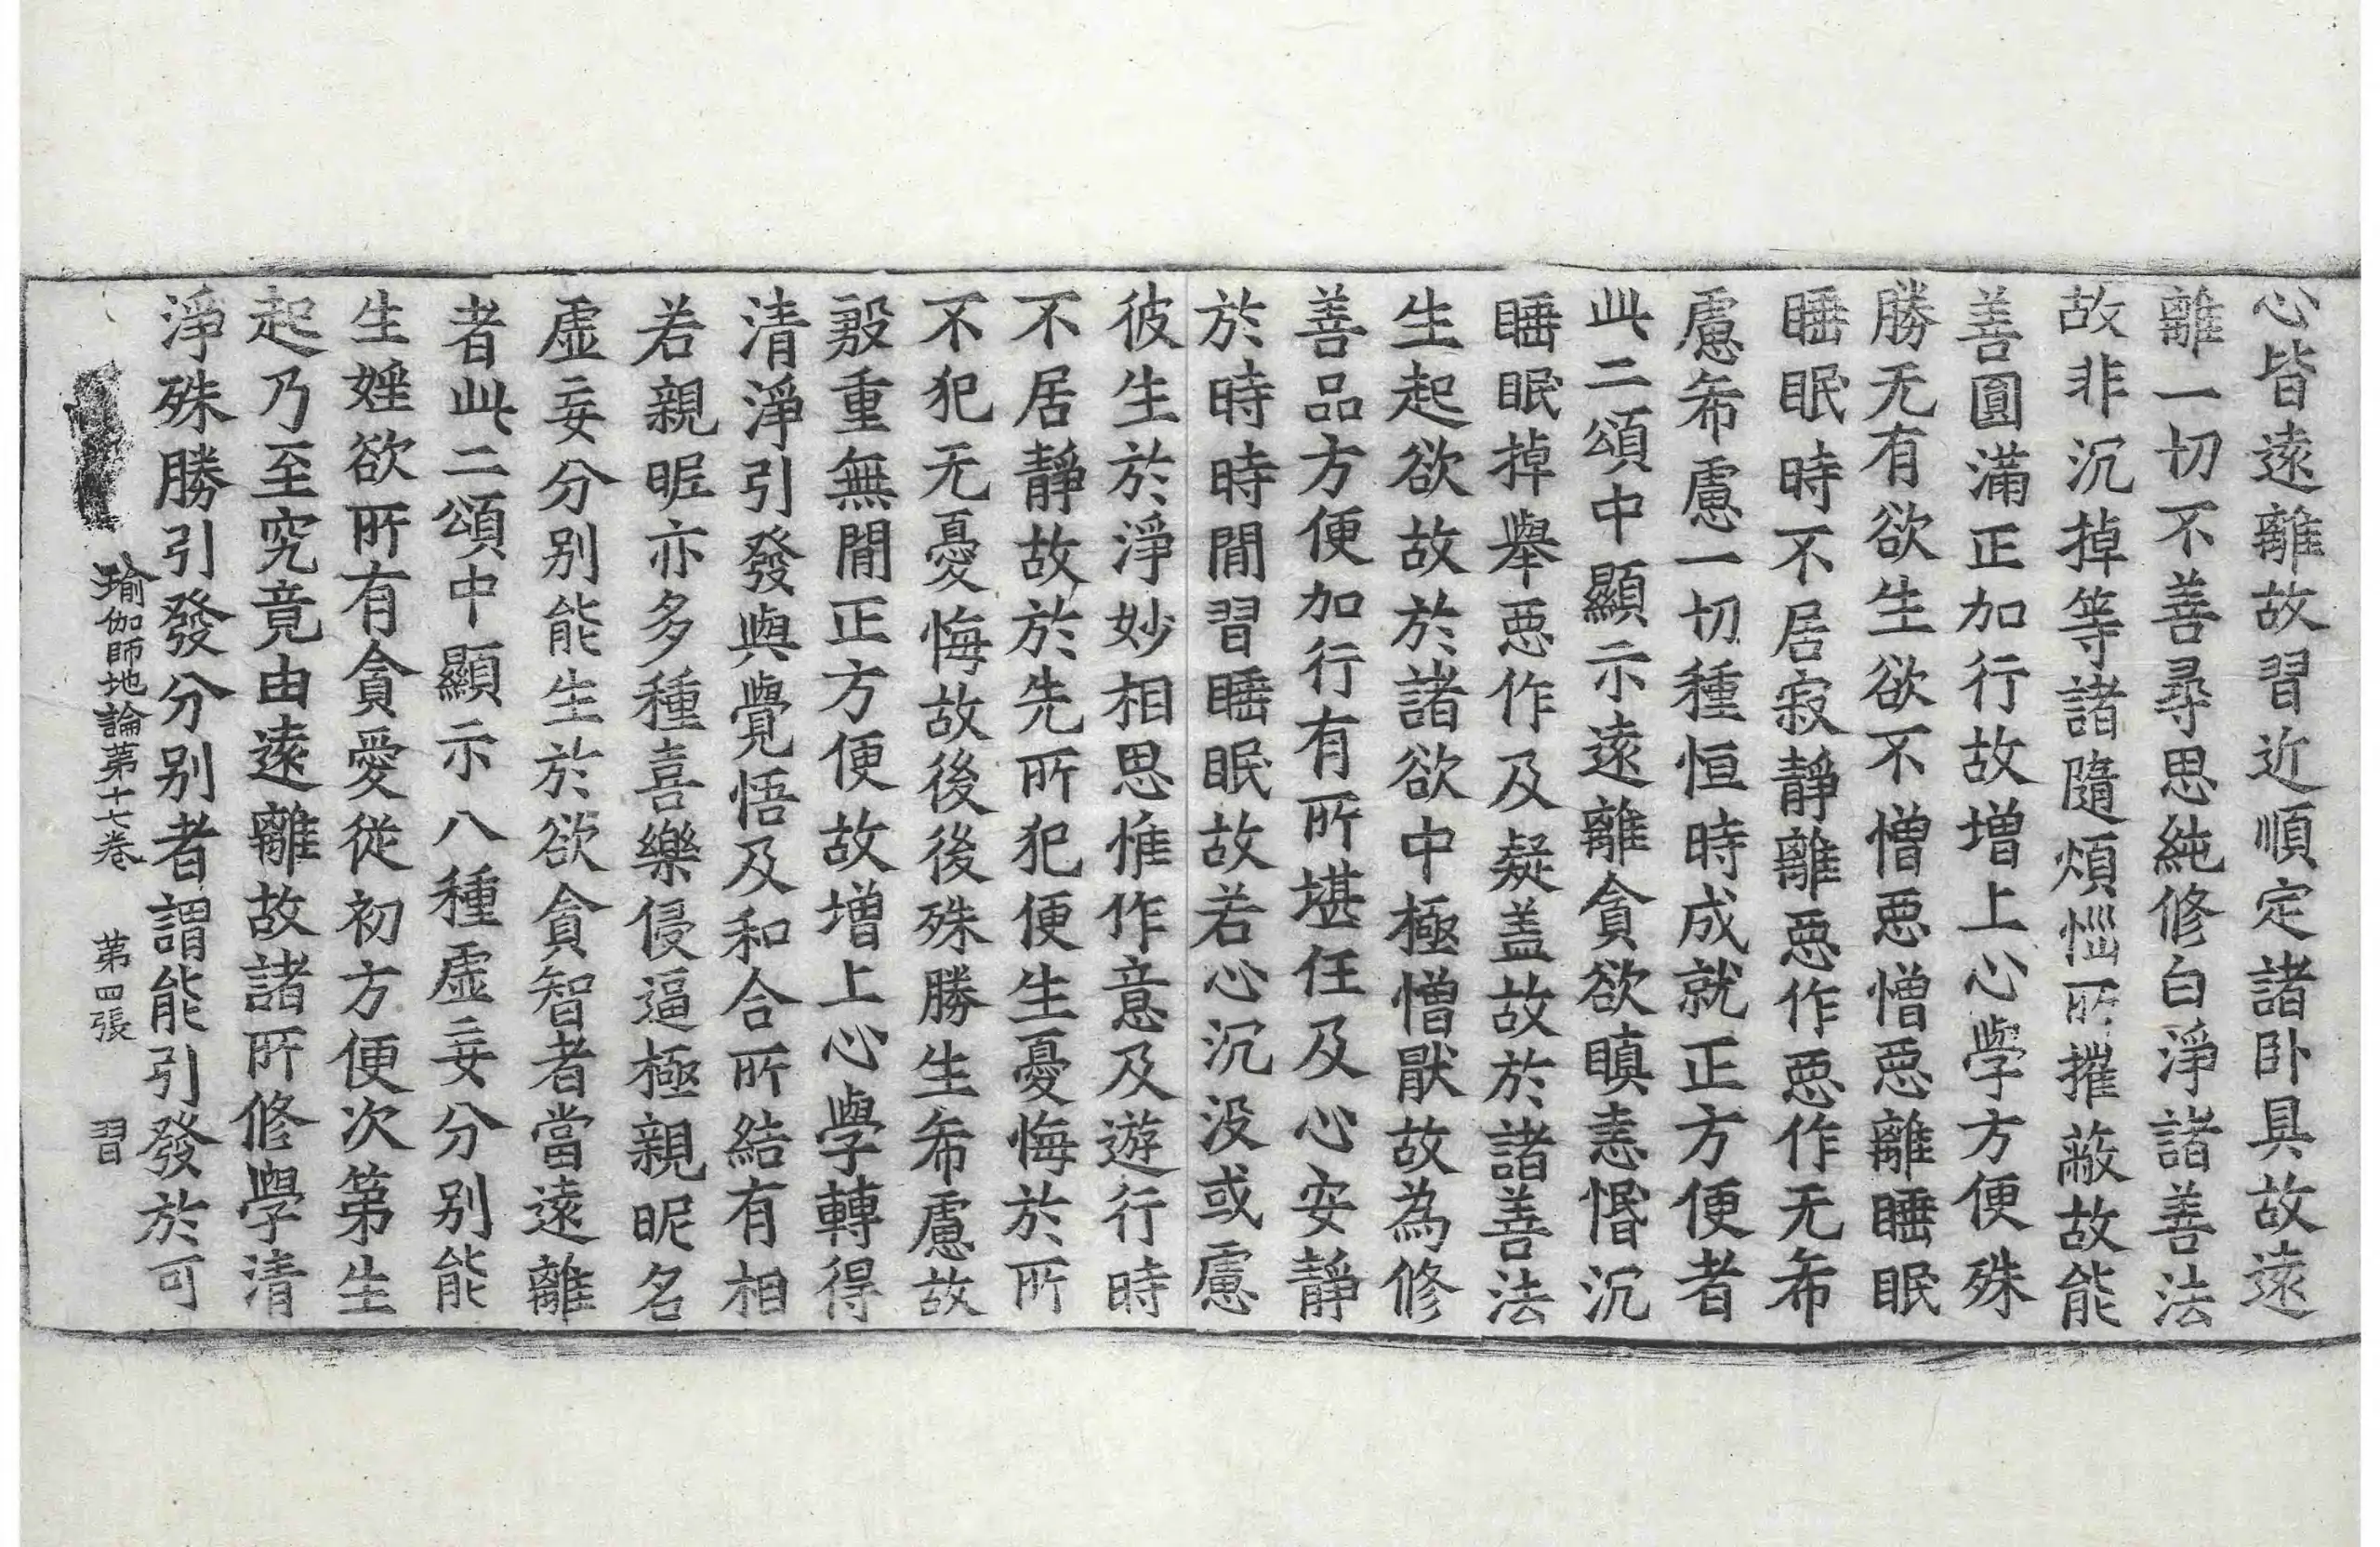 心皆遠離故習近順定諸卧具故遠
離一切不善尋思純修白淨諸善法
故非沉掉等諸隨煩惱所摧蔽故能
善圓滿正加行故增上心學方便殊
勝无有欲生欲不憎惡憎惡離睡眠
睡眠時不居寂靜離惡作惡作无希
慮希慮一切種恒時成就正方便者
此二頌中顯示遠離貪欲瞋恚惛沉
睡眠掉舉惡作及疑盖故於諸善法
生起欲故於諸欲中極憎猒故為修
善品方便加行有所堪任及心安靜
於時時間習睡眠故若心沉没或慮
彼生於淨妙相思惟作意及遊行時
不居靜故於先所犯便生憂悔於所
不犯无憂悔故後後殊勝生希慮故
殷重無間正方便故增上心學轉得
清淨引發與覺悟及和合所結有相
若親昵亦多種喜樂侵逼極親昵名
虛妄分别能生於欲貪智者當遠離
者此二頌中顯示八種虛妄分别能
生婬欲所有貪愛從初方便次第生
起乃至究竟由遠離故諸所修學清
淨殊勝引發分别者謂能引發於可
瑜伽師地論第十七卷　第四張　習